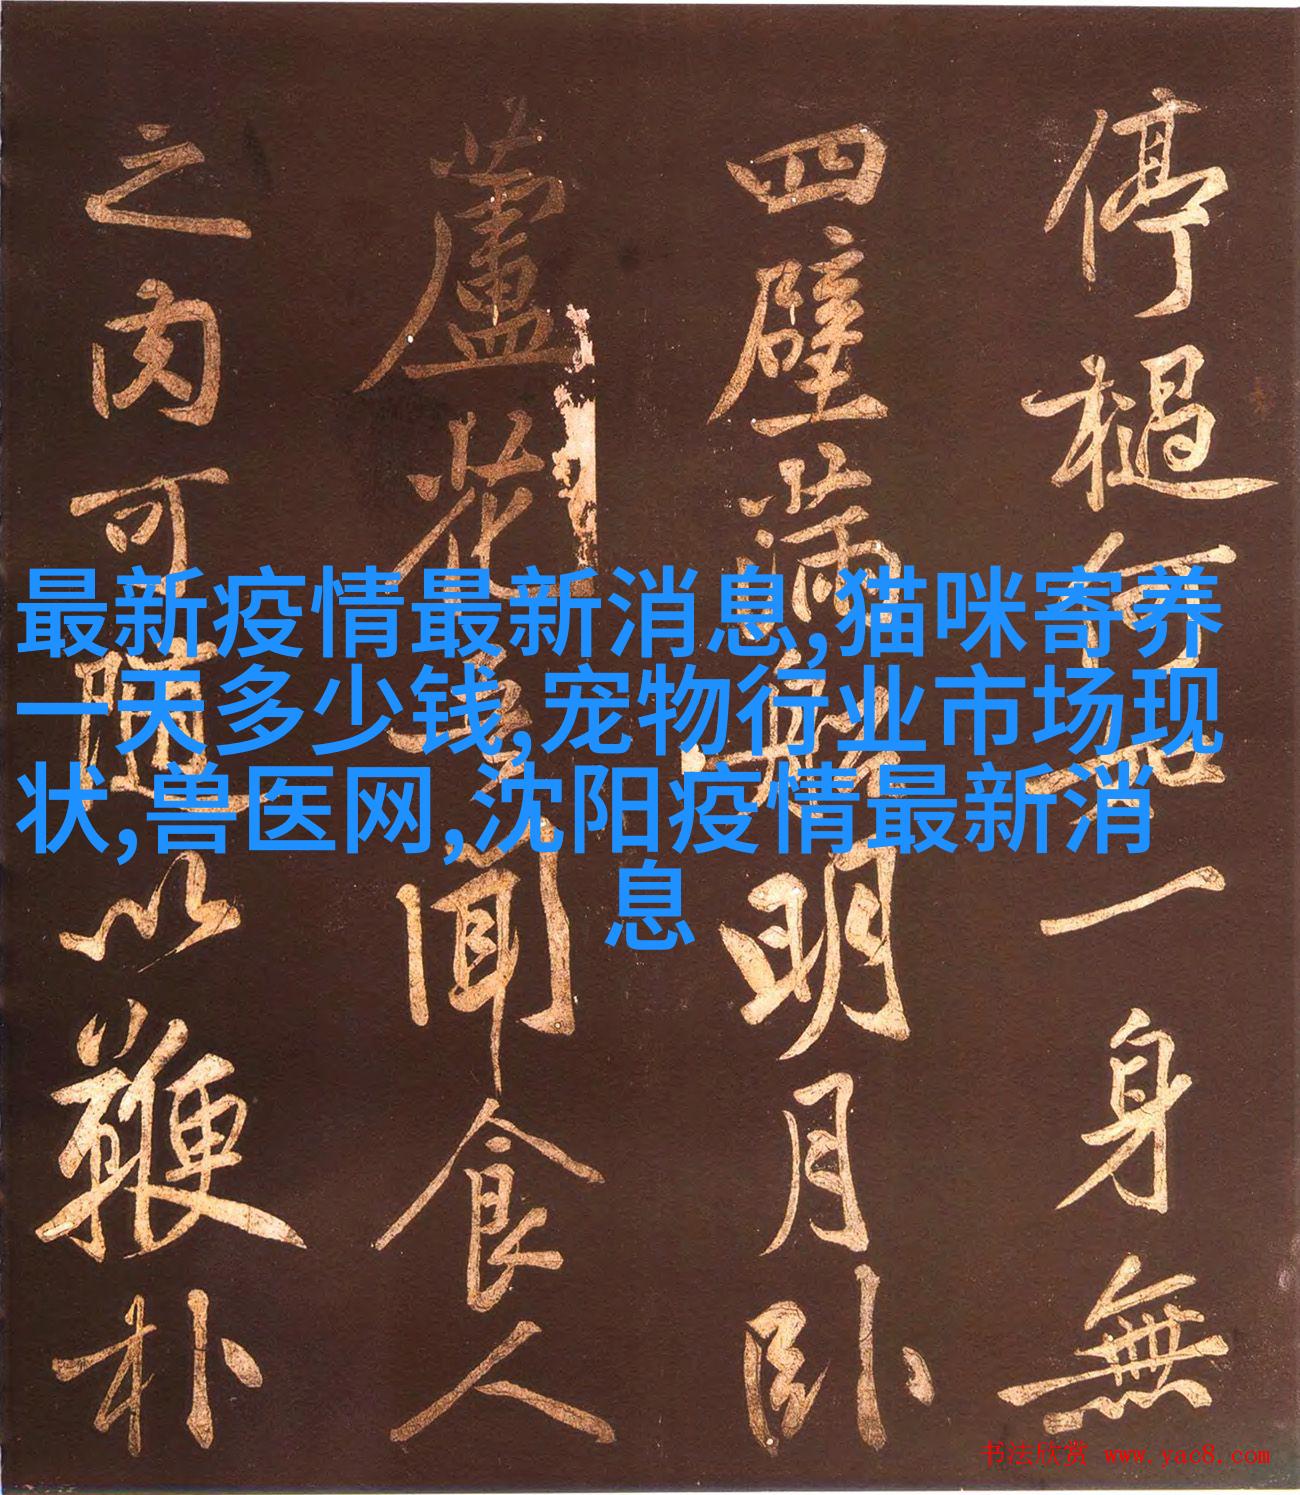 停
一身無
四壁滿
明月臥
蘆花吾聞食人
之肉可隨以鞭朴
最新疫情最新消息,猫咪寄养
一天多少钱,宠物行业市场现
状,兽医网,沈阳疫情最新消
息
书法欣赏 www.yac8.com